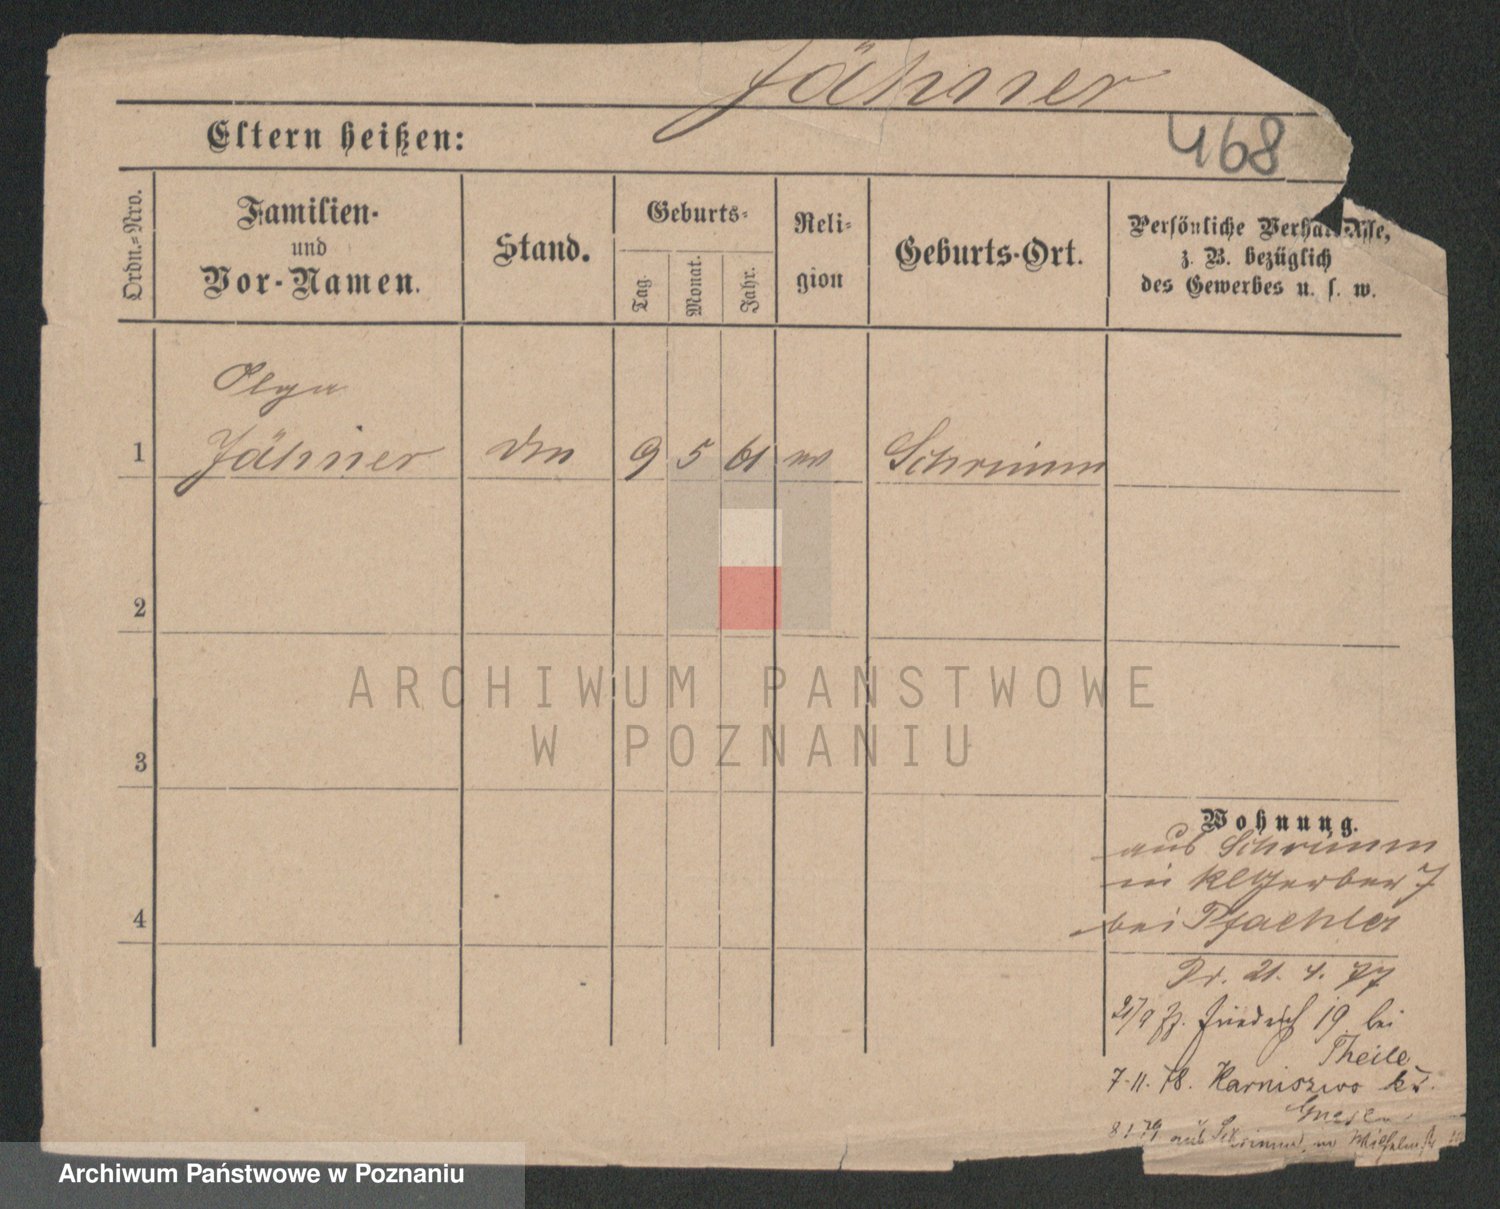 Jähner
468
Eltern heißen:
Ordn.=Nro.
Familien-
und
Vor-Namen.
Stand.
Geburts-
Tag.
Monat.
Jahr.
Reli-
gion
Geburts-Ort.
Persönliche Verhältnisse,
z. B. bezüglich
des Gewerbes u. s. w.
Olga
1 Jähner 9 5 61 ev Schrimm
2
3
4
ARCHIWUM PAŃSTWOWE
W POZNANIU
Wohnung.
aus Schrimm
in Kl Gerber 7
bei Pfaehler
Pr. 21. 4. 77
21/9 Fr. Friedrich 19 bei
Theile
7-11. 78. Karniszewo
Gnesen
8 1 79 aus Schrimm, Wilhelm
Archiwum Państwowe w Poznaniu